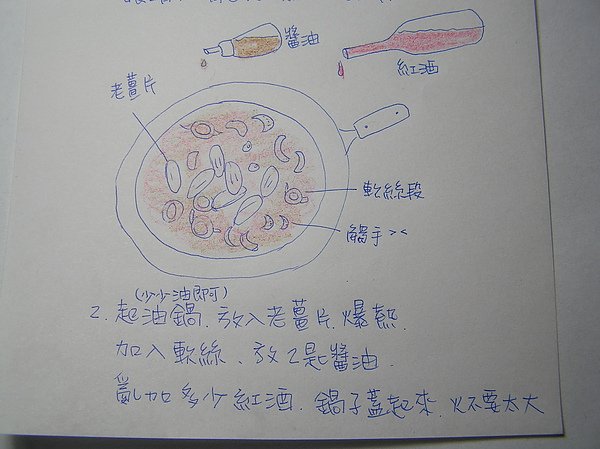 醬油
紅酒
老薑片
軟絲段
觸手><
(少少油即可)
2. 起油鍋. 放入老薑片. 爆熱.
加入軟絲. 放2匙醬油.
亂加多少紅酒. 鍋子蓋起來. 火不要太大